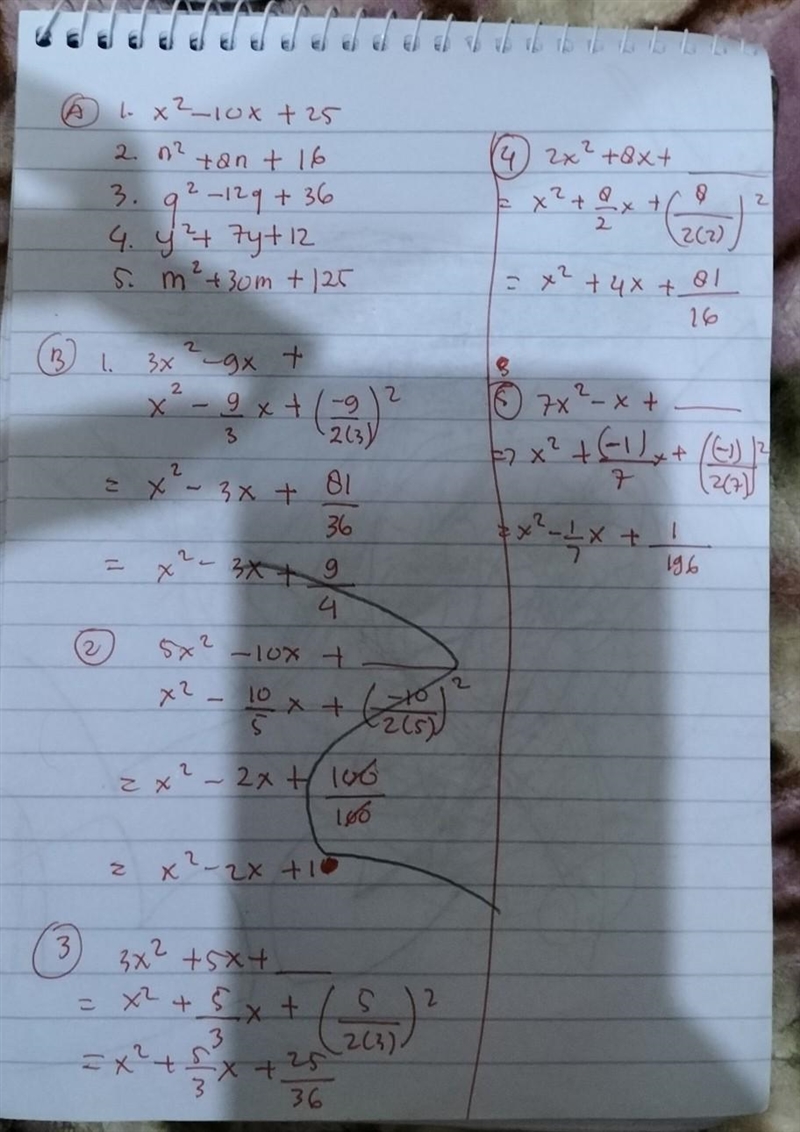 Ⓐ 1. x² - 10x + 25
2. n² + 8n + 16
3. q² - 12q + 36
4. y² + 7y + 12
5. m² + 30m + 125
Ⓑ 1. 3x² - 9x +
x² - 9/3 x + (-9/2(3))²
= x² - 3x + 81/36
= x² - 3x + 9/4
② 5x² - 10x + ____
x² - 10/5 x + (-10/2(5))²
= x² - 2x + 100/100
= x² - 2x + 1
③ 3x² + 5x + ___
= x² + 5/3 x + (5/2(3))²
= x² + 5/3 x + 25/36
④ 2x² + 8x + ____
= x² + 8/2 x + (8/2(2))²
= x² + 4x + 81/16
5
7x² - x + ____
=> x² + (-1)/7 x + ((-1)/2(7))²
= x² - 1/7 x + 1/196